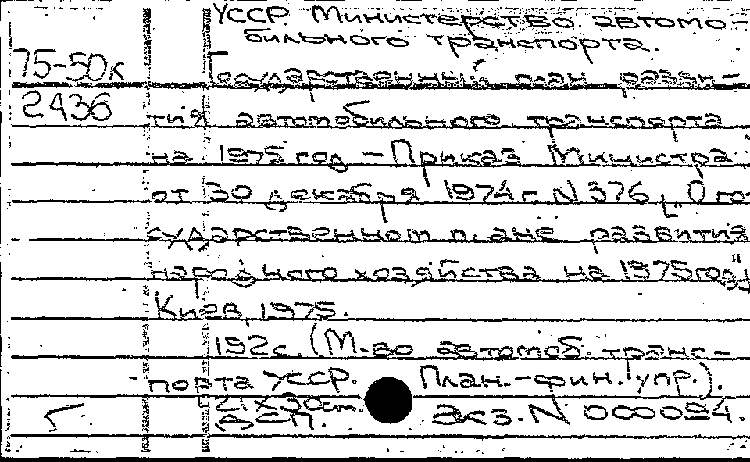 УССР. Министерство автомо-
бильного транспорта.
75-50к
2436
Государственный план разви-
тия автомобильного транспорта
на 1975 год. – Приказ Министра
от 30 декабря 1974 г. N 376 „О го-
сударственном плане развития
народного хозяйства на 1975 год"
Киев, 1975.
192 с. (М-во автомоб. транс-
порта УССР. План.-фин. упр.).
21х30 cm.
ДСП. Экз. N 000024.